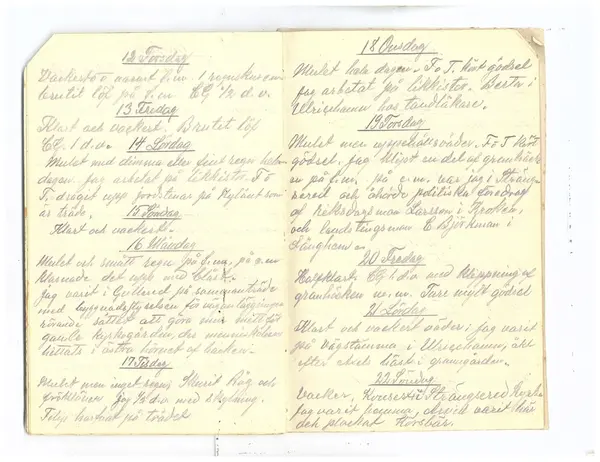 12 Torsdag
Vackert o varmt f.m. 1 regnskur em
brutit löf på f.m. EG 1/2 d.v.
13 Fredag
Klart och vackert. Brutit löf
EG 1 d.v. 14 Lördag
Mulet med dimma eller fint regn hela
dagen. Jag arbetat på likkistor. F o
T. dragit upp på
är träde.
15 Söndag
Klart och vackert.
16 Måndag
Mulet och smått regn på f.m., på e.m
klarnade det upp med blåst.
Jag varit i Gullered på sammanträde
med byggnadsstyrelsen för
rörande sättet att göra
gamla kyrkogården, der menniskoben
hittats i östra hörnet af backen.
17 Tisdag
Mulet men inget regn. Råg och
Jag 1/2 d.v. med skyling.
Filip harfvat på trädet
18 Onsdag
Mulet hela dagen. F o T. kört gödsel
jag arbetat på likkistor. Berta i
Ulricehamn hos tandläkare.
19 Torsdag
Mulet men uppehållsväder. F o T kört
gödsel. Jag klippt en del af granhäck
en på f.m. på e.m. var jag i Strängs
ered och åhörde politiska föredrag
af Riksdagsman Larsson i Kroken,
och landstingsman E Björkman i
Långhem.
20 Fredag
Halfklart. EG 1 d.v. med klippning af
granhäcken m.m. Ture myllt gödsel
21 Lördag
Klart och vackert väder. jag varit
på vägstämma i Ulricehamn, åkt
efter häst i granngården.
22 Söndag
Vacker. Konsert i Strängsered Kyrka
Jag varit hemma, varit här
och plockat Körsbär.